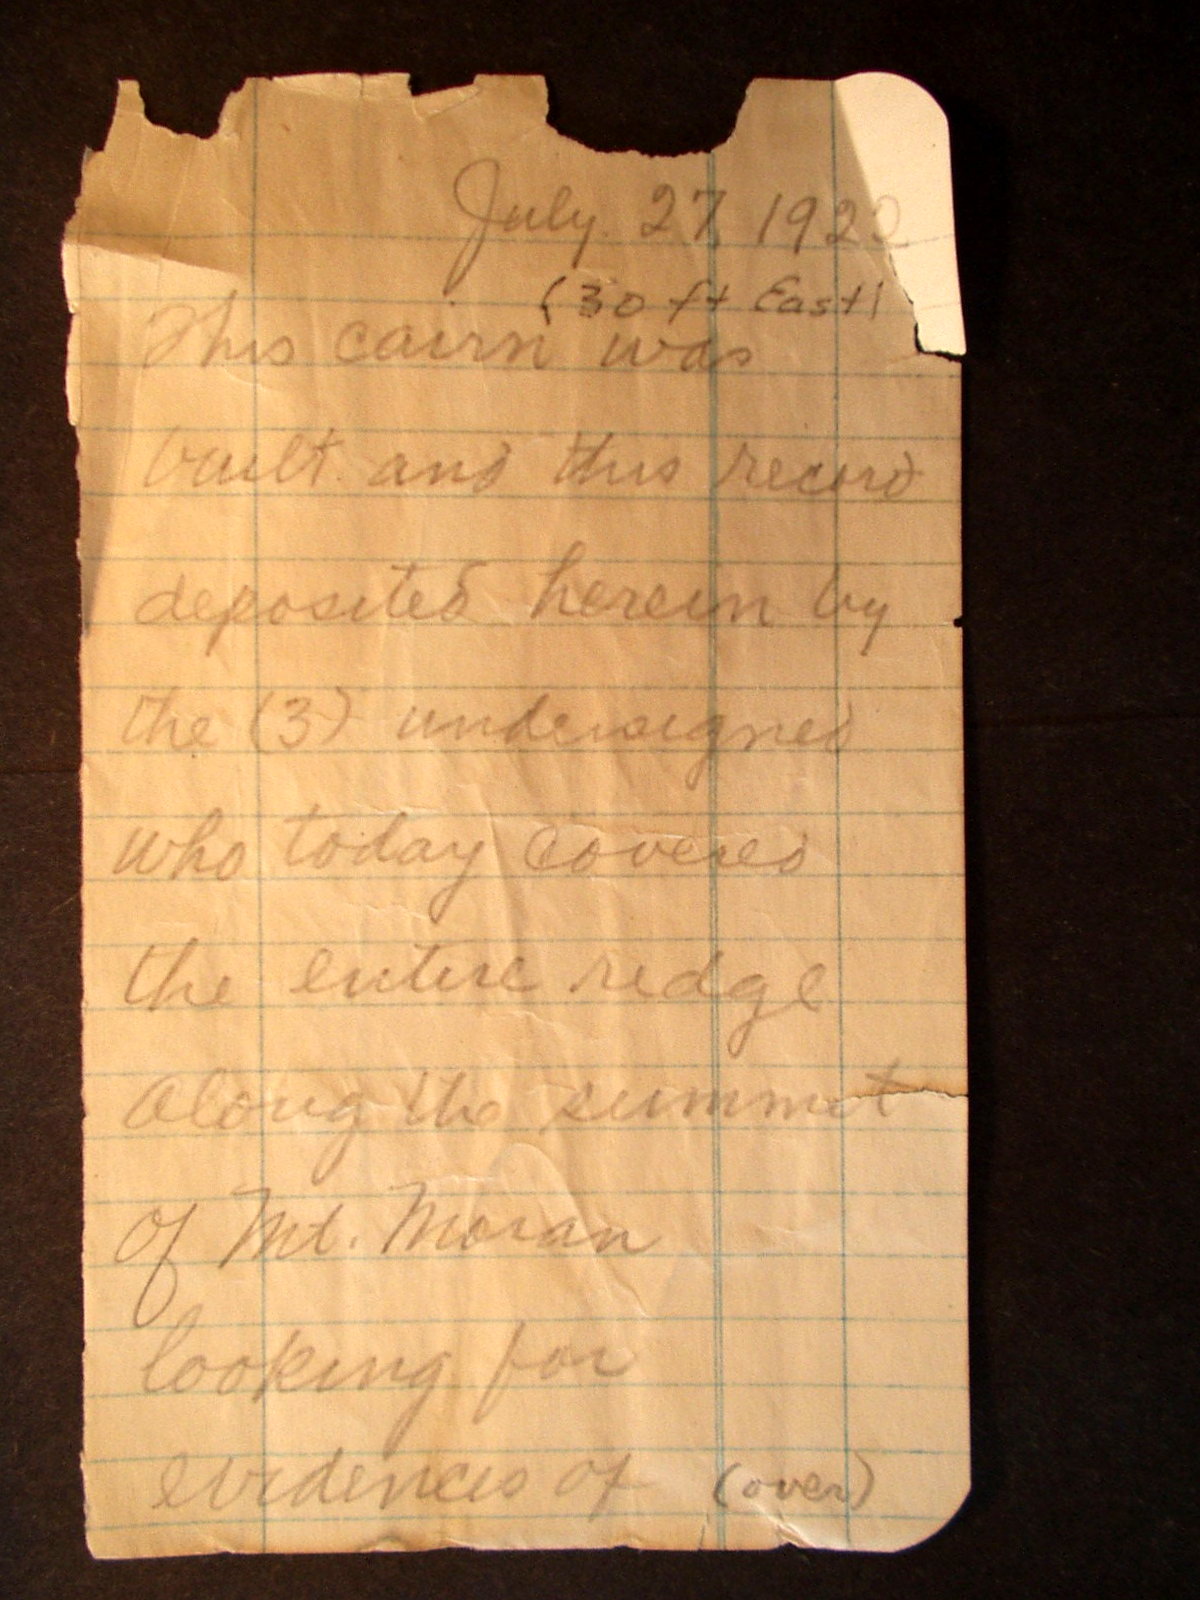 July. 27, 1922
(30 ft East)
This cairn was
built and this record
deposited herein by
the (3) undersigned
who today covered
the entire ridge
along the summit
of Mt. Moran
looking for
evidences of (over)